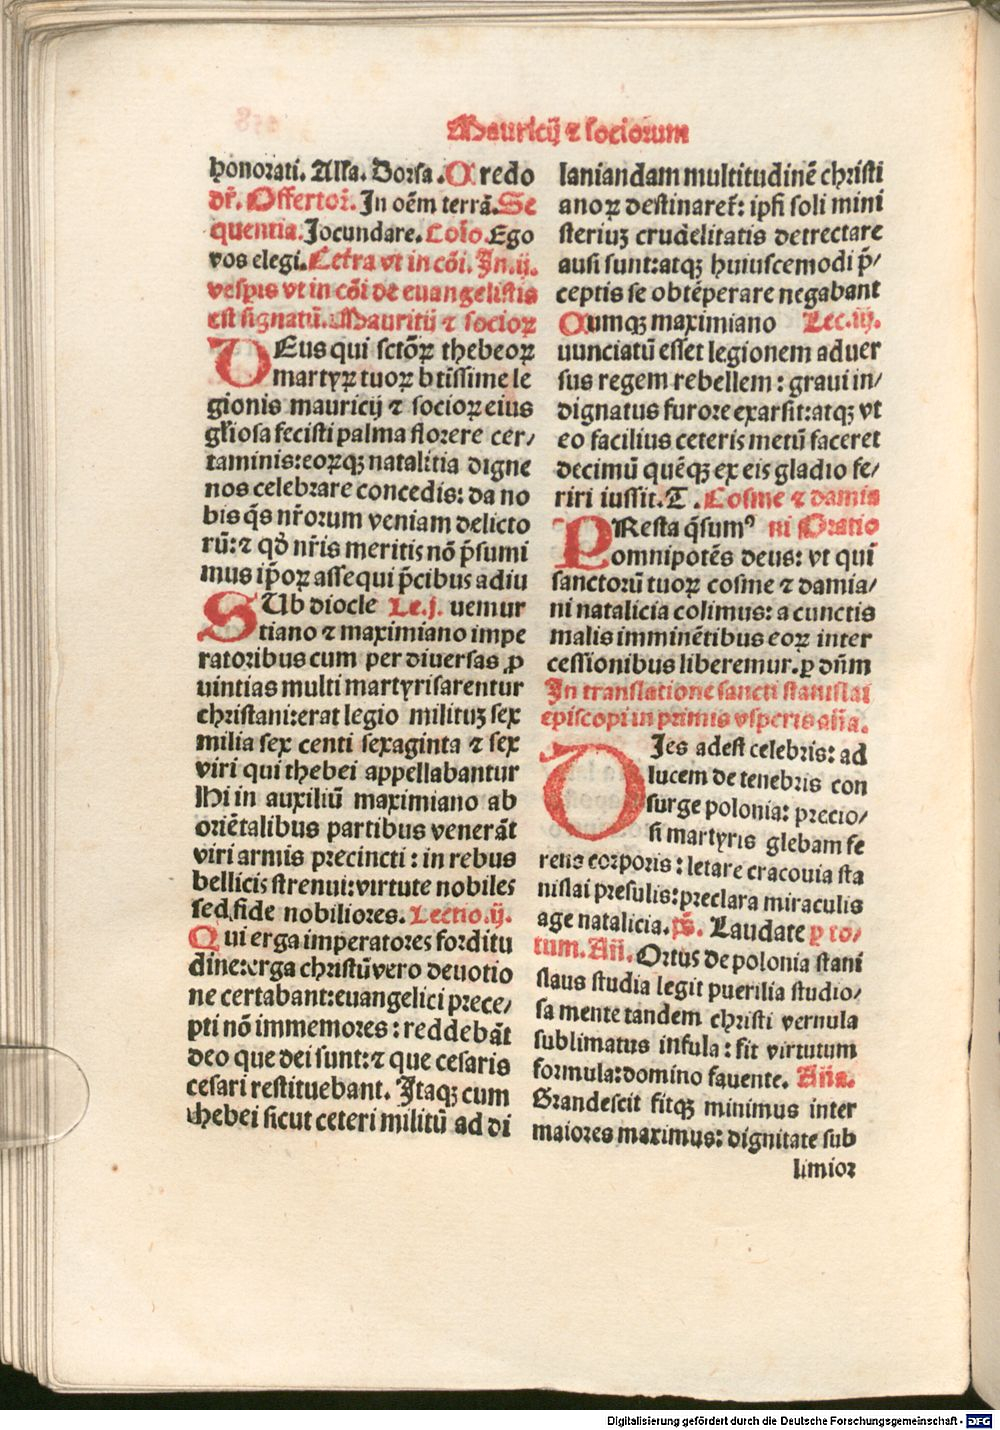 Mauricij ⁊ sociorum
honorati. Alľa. Dorsa. Credo
dr̄. Offertoꝛ̄. In oēm terrā. Se
quentia. Jocundare. Cōlo. Ego
vos elegi. Cet̄ra vt in cōi. In .ij.
vesꝑis vt in cōi de euangelistis
est signatū. Mauritij ⁊ socioꝝ
DEus qui sctōꝝ thebeoꝝ
martyꝝ tuoꝝ btīssime le
gionis mauricij ⁊ socioꝝ eius
gľiosa fecisti palma florere cer/
taminis: eoꝝqꝫ natalitia digne
nos celebrare concedis: da no
bis q̄s nr̄orum veniam delicto
rū: ⁊ qď nr̄is meritis nō p̄sumi
mus ip̄oꝝ assequi p̄cibus adiu
SUb diocle Le.j. uemur
tiano ⁊ maximiano impe
ratoribus cum per diuersas ꝓ
uintias multi martyrisarentur
christani: erat legio milituꝫ sex
milia sex centi sexaginta ⁊ sex
viri qui thebei appellabantur
Hi in auxiliū maximiano ab
oriētalibus partibus venerāt
viri armis precincti: in rebus
bellicis strenui: virtute nobiles
sed fide nobiliores. Lectio.ij.
Qui erga imperatores forditu
dine: erga christū vero deuotio
ne certabant: euangelici prece/
pti nō immemores: reddebāt
deo que dei sunt: ⁊ que cesaris
cesari restituebant. Itaqꝫ cum
thebei sicut ceteri militū ad di
laniandam multitudinē christi
anoꝝ destinaret̄: ipsi soli mini
steriuꝫ crudelitatis detrectare
ausi sunt: atqꝫ huiuscemodi p̄/
ceptis se obtēperare negabant
Cumqꝫ maximiano Lec.iij.
uunciatū esset legionem aduer
sus regem rebellem: graui in/
dignatus furore exarsit: atqꝫ vt
eo facilius ceteris metū faceret
decimū quēqꝫ ex eis gladio fe/
riri iussit. T. Cosme ⁊ damia
PResta q̄sumꝰ ni Oratio
omnipotēs deus: vt qui
sanctorū tuoꝝ cosme ⁊ damia/
ni natalicia colimus: a cunctis
malis imminētibus eoꝝ inter
cessionibus liberemur. ꝑ dn̄m
In translatione sancti stanislai
episcopi in primis vsperis an̄a.
DIes adest celebris: ad
lucem de tenebris con
surge polonia: precio/
si martyris glebam fe
rens corporis: letare cracouia sta
nislai presulis: preclara miraculis
age natalicia. ps̄. Laudate ꝑ to/
tum. An̄. Ortus de polonia stani
slaus studia legit puerilia studio/
sa mente tandem christi vernula
sublimatus infula: fit virtutum
formula: domino fauente. An̄a.
Grandescit fitqꝫ minimus inter
maiores maximus: dignitate sub
limior
Digitalisierung gefördert durch die Deutsche Forschungsgemeinschaft - DFG